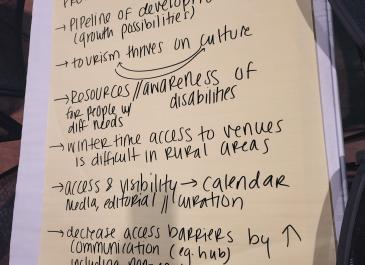 → Pipeline of
(growth possibilities)
→ tourism thrives on culture
→ Resources // awareness of
for people w/ disabilities
diff needs
→ wintertime access to venues
is difficult in rural areas
→ access & visibility → calendar
media, editorial // curation
→ decrease access barriers by ↑
communication (eg. hub)
including